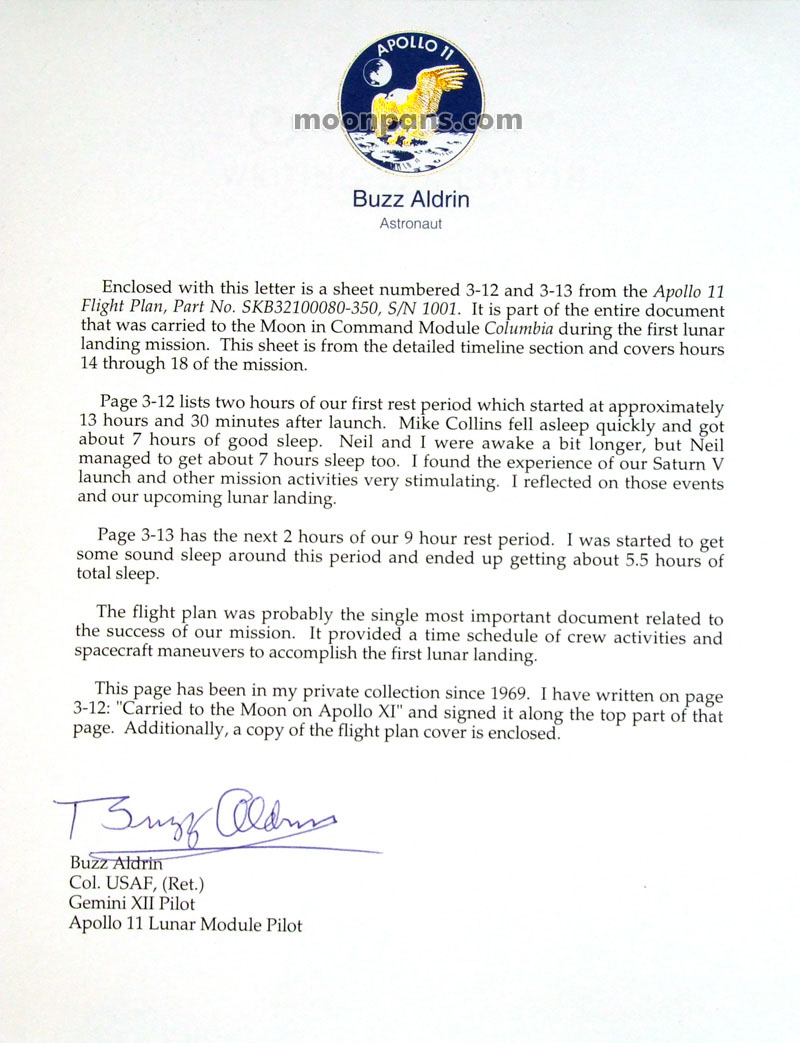 APOLLO 11
moonpans.com
Buzz Aldrin
Astronaut
Enclosed with this letter is a sheet numbered 3-12 and 3-13 from the Apollo 11
Flight Plan, Part No. SKB32100080-350, S/N 1001. It is part of the entire document
that was carried to the Moon in Command Module Columbia during the first lunar
landing mission. This sheet is from the detailed timeline section and covers hours
14 through 18 of the mission.
Page 3-12 lists two hours of our first rest period which started at approximately
13 hours and 30 minutes after launch. Mike Collins fell asleep quickly and got
about 7 hours of good sleep. Neil and I were awake a bit longer, but Neil
managed to get about 7 hours sleep too. I found the experience of our Saturn V
launch and other mission activities very stimulating. I reflected on those events
and our upcoming lunar landing.
Page 3-13 has the next 2 hours of our 9 hour rest period. I was started to get
some sound sleep around this period and ended up getting about 5.5 hours of
total sleep.
The flight plan was probably the single most important document related to
the success of our mission. It provided a time schedule of crew activities and
spacecraft maneuvers to accomplish the first lunar landing.
This page has been in my private collection since 1969. I have written on page
3-12: "Carried to the Moon on Apollo XI" and signed it along the top part of that
page. Additionally, a copy of the flight plan cover is enclosed.
Buzz Aldrin
Buzz Aldrin
Col. USAF, (Ret.)
Gemini XII Pilot
Apollo 11 Lunar Module Pilot